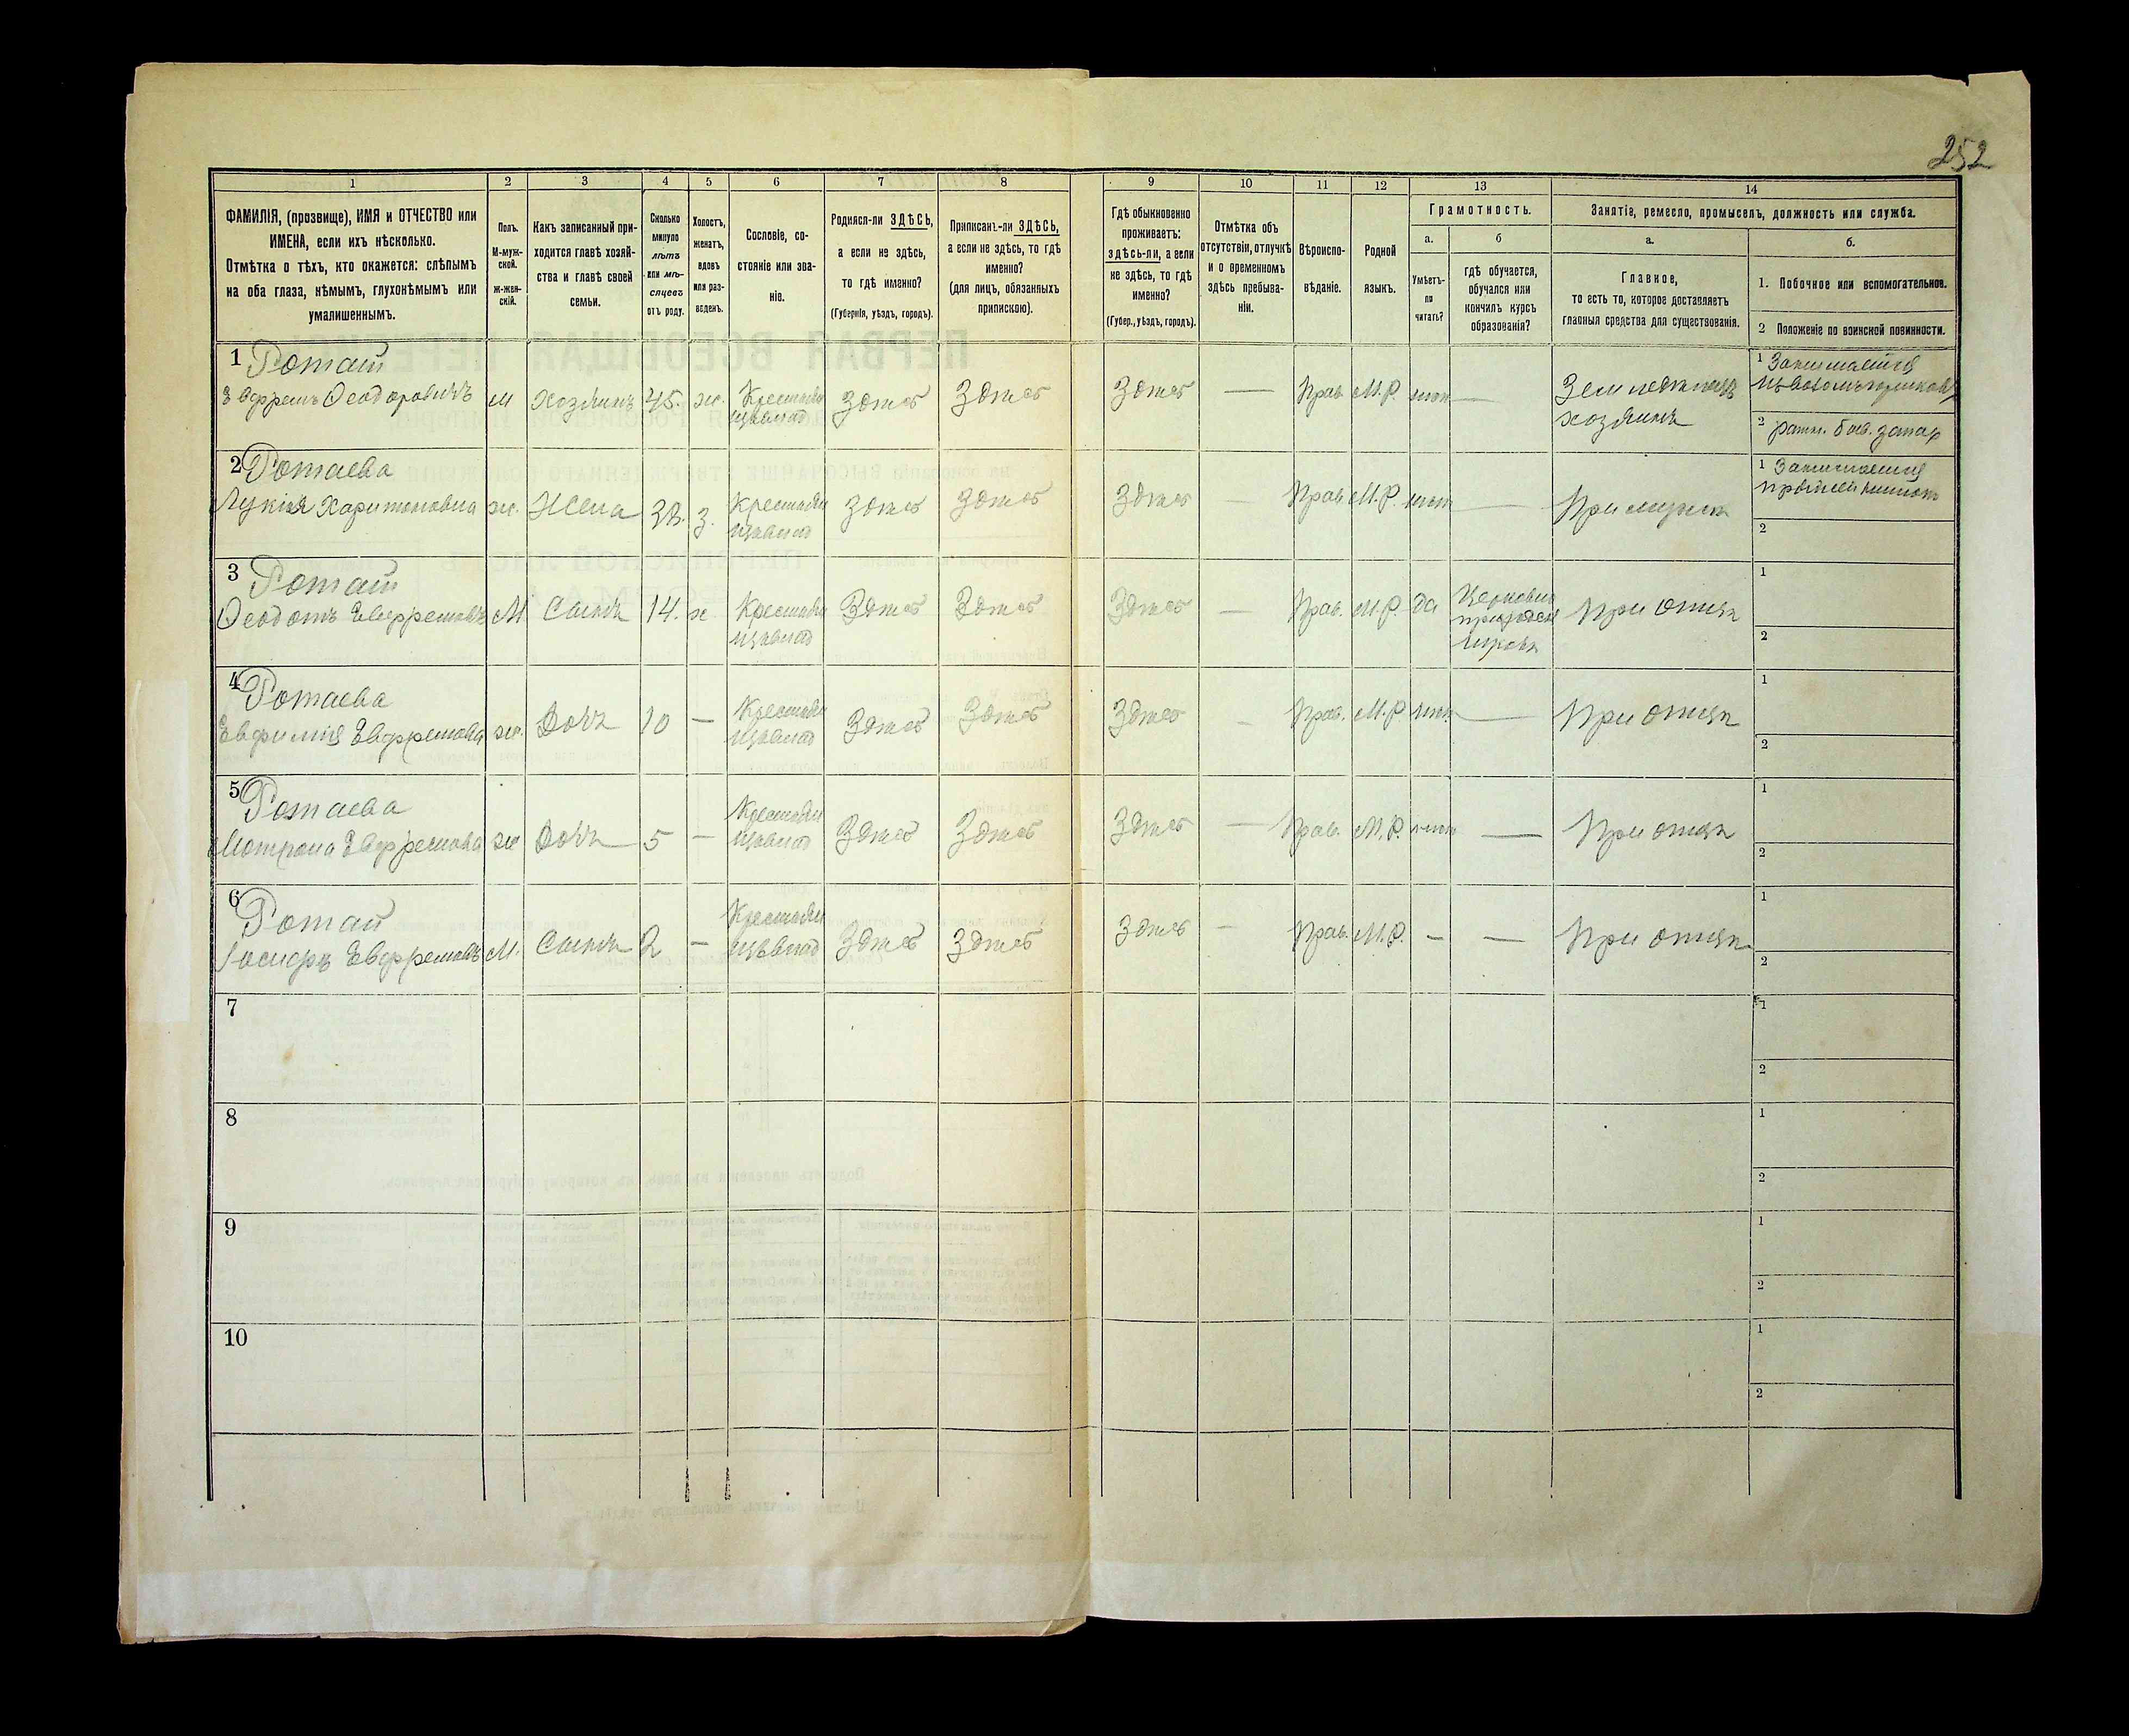 252
1
2
3
4
5
6
7
8
9
10
11
12
13
14
ФАМИЛІЯ, (прозвище), ИМЯ и ОТЧЕСТВО или
ИМЕНА, если ихъ нѣсколько.
Отмѣтка о тѣхъ, кто окажется: слѣпымъ
на оба глаза, нѣмымъ, глухонѣмымъ или
умалишеннымъ.
Полъ.
М-муж-
ской.
ж-жен-
скій.
Какъ записанный при-
ходится главѣ хозяй-
ства и главѣ своей
семьи.
Сколько
минуло
лѣтъ
или мѣ-
сяцевъ
отъ роду.
Холостъ,
женатъ,
вдовъ
или раз-
веденъ.
Сословіе, со-
стояніе или зва-
ніе.
Родился-ли ЗДѢСЬ,
а если не здѣсь,
то гдѣ именно?
(Губернія, уѣздъ, городъ).
Приписанъ-ли ЗДѢСЬ,
а если не здѣсь, то гдѣ
именно?
(для лицъ, обязанныхъ
припискою).
Гдѣ обыкновенно
проживаетъ:
здѣсь-ли, а если
не здѣсь, то гдѣ
именно?
(Губер., уѣздъ, городъ).
Отмѣтка объ
отсутствіи, отлучкѣ
и о временномъ
здѣсь пребыва-
ніи.
Вѣроиспо-
вѣданіе.
Родной
языкъ.
Грамотность.
а.
Умѣетъ-
ли
читать?
б
гдѣ обучается,
обучался или
кончилъ курсъ
образованія?
Занятіе, ремесло, промыселъ, должность или служба.
а.
Главное,
то есть то, которое доставляетъ
главныя средства для существованія.
б.
1. Побочное или вспомогательное.
2 Положеніе по воинской повинности.
1 Ротай
Евфремъ Ѳеодоровичъ м Хозяинъ 45. ж. Здѣсь Здѣсь Здѣсь — Прав. М.Р. нѣтъ —
Земледѣлецъ
хозяинъ
1 Занимается
2 ратн.
2 Ротаева
Лукія Харитоновна ж. Жена з. Здѣсь Здѣсь Здѣсь — Прав. М.Р. нѣтъ — При мужѣ
1 Занимается
2
3 Ротай
Ѳеодотъ Евфремовъ М. Сынъ 14. х Здѣсь Здѣсь Здѣсь — Прав. М.Р. да При отцѣ
1
2
4 Ротаева
Евфимія Евфремова ж. Дочь 10 — Здѣсь Здѣсь Здѣсь — Прав. М.Р. нѣт. — При отцѣ
1
2
5 Ротаева
Мотрона Евфремова ж Дочь 5 — Здѣсь Здѣсь Здѣсь — Прав. М.Р. нѣтъ — При отцѣ
1
2
6 Ротай
Іосифъ Евфремовъ М. Сынъ 2 — Здѣсь Здѣсь Здѣсь — Прав. М.Р. — — При отцѣ
1
2
7
1
2
8
1
2
9
1
2
10
1
2